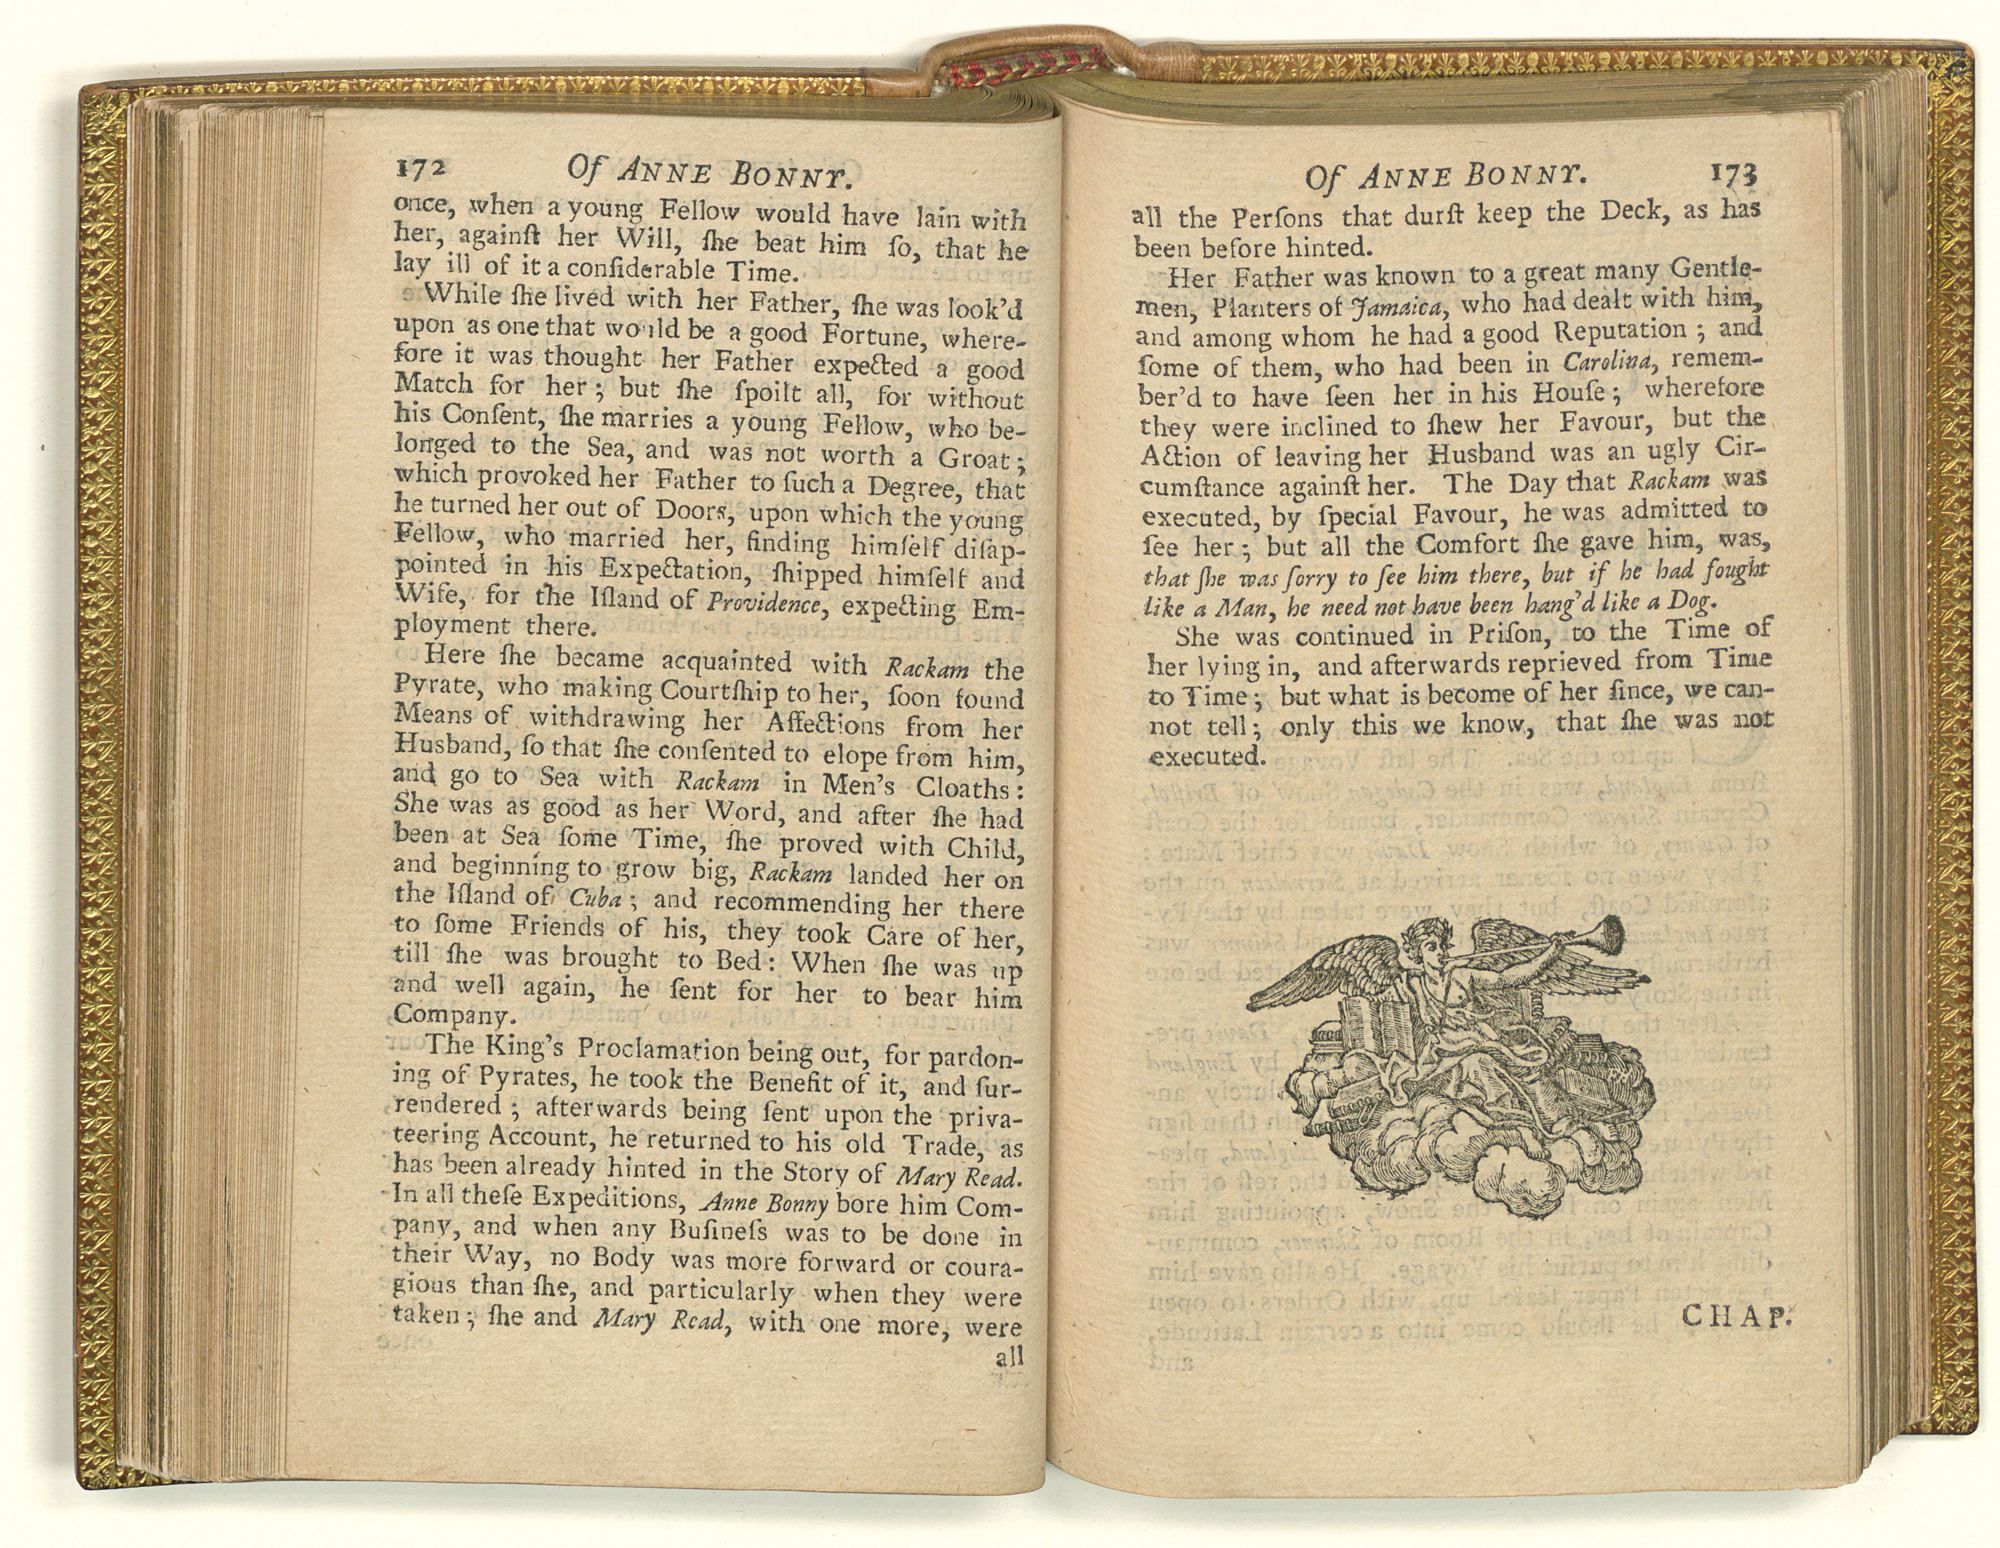 172 Of ANNE BONNY.
once, when a young Fellow would have lain with
her, againſt her Will, ſhe beat him ſo, that he
lay ill of it a conſiderable Time.
While ſhe lived with her Father, ſhe was look'd
upon as one that would be a good Fortune, where-
fore it was thought her Father expected a good
Match for her; but ſhe ſpoilt all, for without
his Conſent, ſhe marries a young Fellow, who be-
longed to the Sea, and was not worth a Groat;
which provoked her Father to ſuch a Degree, that
he turned her out of Doors, upon which the young
Fellow, who married her, finding himſelf diſap-
pointed in his Expectation, ſhipped himſelf and
Wife, for the Iſland of Providence, expecting Em-
ployment there.
Here ſhe became acquainted with Rackam the
Pyrate, who making Courtſhip to her, ſoon found
Means of withdrawing her Affections from her
Husband, ſo that ſhe conſented to elope from him,
and go to Sea with Rackam in Men's Cloaths:
She was as good as her Word, and after ſhe had
been at Sea ſome Time, ſhe proved with Child,
and beginning to grow big, Rackam landed her on
the Iſland of Cuba; and recommending her there
to ſome Friends of his, they took Care of her,
till ſhe was brought to Bed: When ſhe was up
and well again, he ſent for her to bear him
Company.
The King's Proclamation being out, for pardon-
ing of Pyrates, he took the Benefit of it, and ſur-
rendered; afterwards being ſent upon the priva-
teering Account, he returned to his old Trade, as
has been already hinted in the Story of Mary Read.
In all theſe Expeditions, Anne Bonny bore him Com-
pany, and when any Buſineſs was to be done in
their Way, no Body was more forward or coura-
gious than ſhe, and particularly when they were
taken; ſhe and Mary Read, with one more, were
all
Of ANNE BONNY. 173
all the Perſons that durſt keep the Deck, as has
been before hinted.
Her Father was known to a great many Gentle-
men, Planters of Jamaica, who had dealt with him,
and among whom he had a good Reputation; and
ſome of them, who had been in Carolina, remem-
ber'd to have ſeen her in his Houſe; wherefore
they were inclined to ſhew her Favour, but the
Action of leaving her Husband was an ugly Cir-
cumſtance againſt her. The Day that Rackam was
executed, by ſpecial Favour, he was admitted to
ſee her; but all the Comfort ſhe gave him, was,
that ſhe was ſorry to ſee him there, but if he had fought
like a Man, he need not have been hang'd like a Dog.
She was continued in Priſon, to the Time of
her lying in, and afterwards reprieved from Time
to Time; but what is become of her ſince, we can-
not tell; only this we know, that ſhe was not
executed.
CHAP.